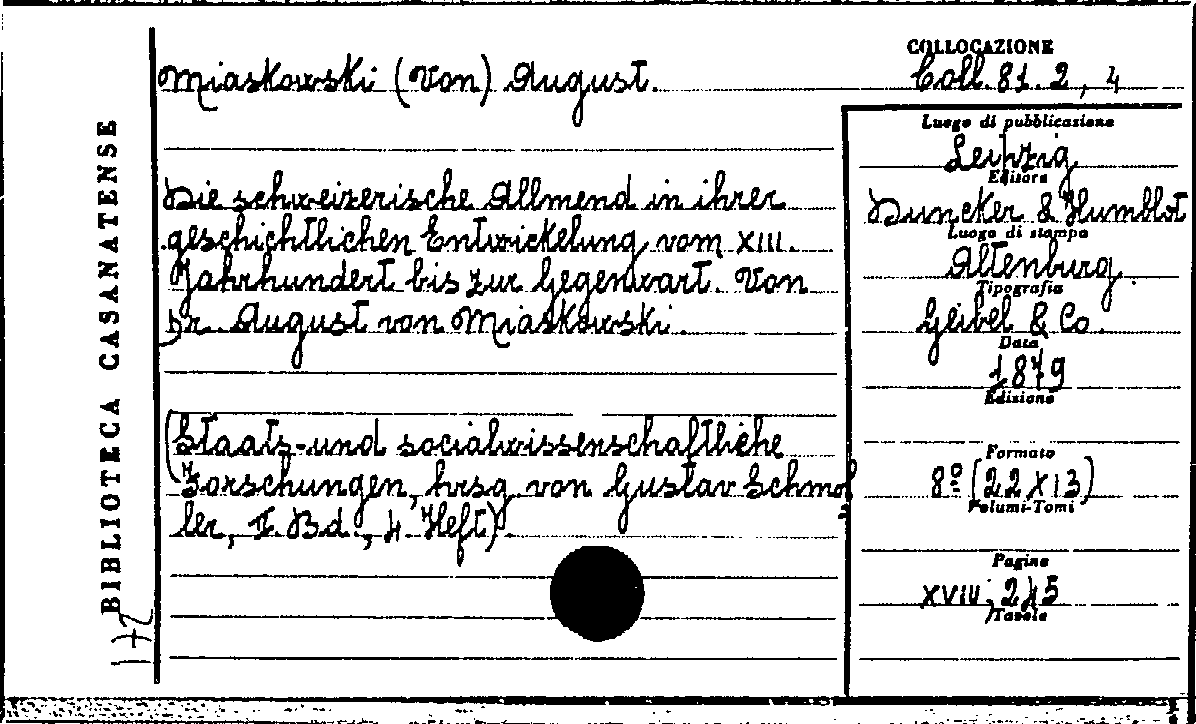 BIBLIOTECA CASANATENSE
172
Miaskowski (Von) August.
COLLOCAZIONE
Coll. 81. 2, 4
Die schweizerische Allmend in ihrer
geschichtlichen Entwickelung vom XIII.
Jahrhundert bis zur Gegenwart. Von
Dr. August von Miaskowski.
(Staats- und socialwissenschaftliche
Forschungen, hrsg. von Gustav Schmol
ler, II. Bd., 4. Heft).
Luogo di pubblicazione
Leipzig
Editore
Duncker & Humblot
Luogo di stampa
Altenburg.
Tipografia
Geibel & Co.
Data
1879
Edizione
Formato
8º (22 X 13)
Volumi-Tomi
Pagine
XVIII; 245
Tavole